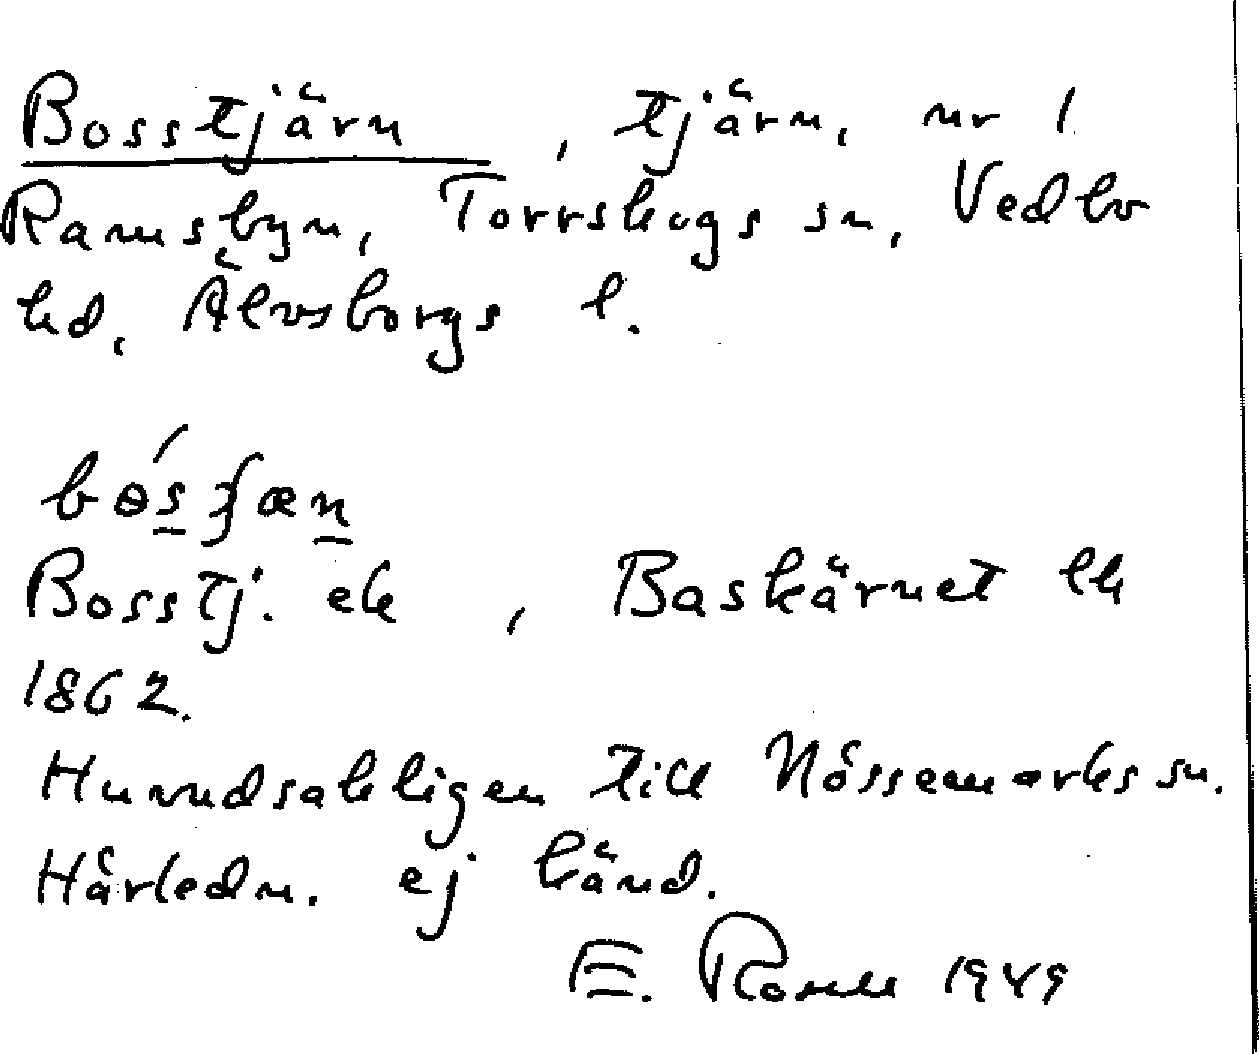 Bosstjärn , tjärn, nr 1
Ramsbyn, Torrskogs sn, Vedbo
hd, Älvsborgs l.
Bosstj. ek , Baskärnet lk
1862.
Huvudsakligen till Nössemarks sn.
Härledn. ej känd.
E. 1949